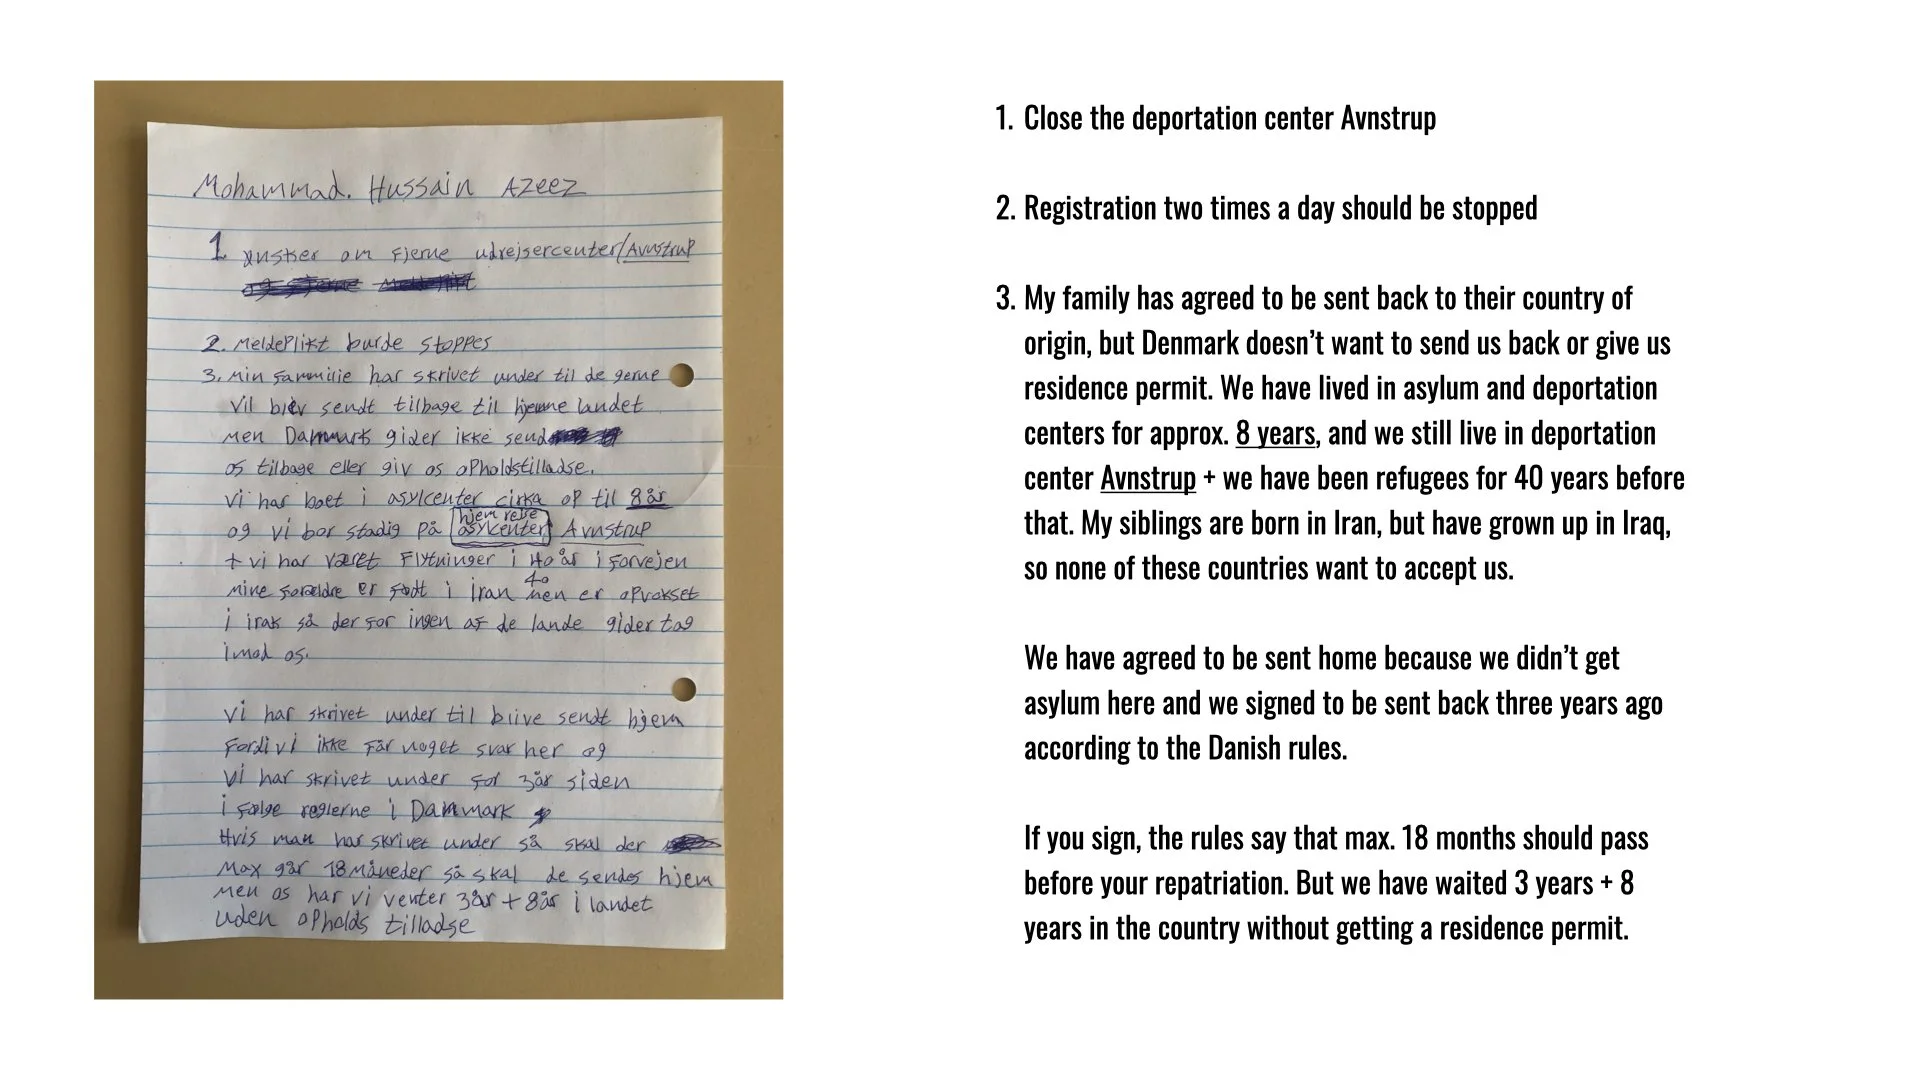 Mohammad. Hussain Azeez
1. ønsker om fjerne udrejsercenter/Avnstrup
2. MeldePlikt burde stoppes
3. Min fammilie har skrivet under til de gerne
vil blev sendt tilbage til hjemme landet
men Dammark gider ikke send
os tilbage eller giv os oPholdstilladse.
vi har boet i asylcenter cirka op til 8 år
og vi bor stadig på hjem rejse asylcenter Avnstrup
+ vi har været Flytninger i 40 år i forvejen
40
mine forældre er født i iran men er oPvokset
i irak så der for ingen af de lande gider tag
imod os.
vi har skrivet under til blive sendt hjem
fordi vi ikke får noget svar her og
vi har skrivet under for 3år siden
i følge reglerne i Dammark
Hvis man har skrivet under så skal der
Max går 18 måneder så skal de sendes hjem
men os har vi venter 3år + 8år i landet
uden oPholds tilladse
1. Close the deportation center Avnstrup
2. Registration two times a day should be stopped
3. My family has agreed to be sent back to their country of
origin, but Denmark doesn’t want to send us back or give us
residence permit. We have lived in asylum and deportation
centers for approx. 8 years, and we still live in deportation
center Avnstrup + we have been refugees for 40 years before
that. My siblings are born in Iran, but have grown up in Iraq,
so none of these countries want to accept us.
We have agreed to be sent home because we didn’t get
asylum here and we signed to be sent back three years ago
according to the Danish rules.
If you sign, the rules say that max. 18 months should pass
before your repatriation. But we have waited 3 years + 8
years in the country without getting a residence permit.